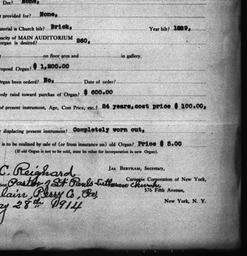 Date? None,
provided for? None,
material is Church blt? Brick, Year blt? 1889,
capacity of MAIN AUDITORIUM
organ is desired? 260,
on floor area and in gallery.
posed Organ? $ 1,200.00
Organ been ordered? No, Date of order?
ready raised toward purchase of Organ? $ 600.00
of present instrument, Age, Cost Price, etc.? 24 years, cost price $ 100.00,
displacing present instrument? Completely worn out,
is to be realized by sale of (or from insurance on) old Organ? Price $ 5.00
(If old Organ is not to be sold, state its value for incorporation in new Organ).
Jas. Bertram, Secretary,
C. Reighard
Carnegie Corporation of New York,
Pastor of St Pauls Lutheran Church
576 Fifth Avenue,
lain, Perry Co, Pa
New York, N. Y.
28th 1914